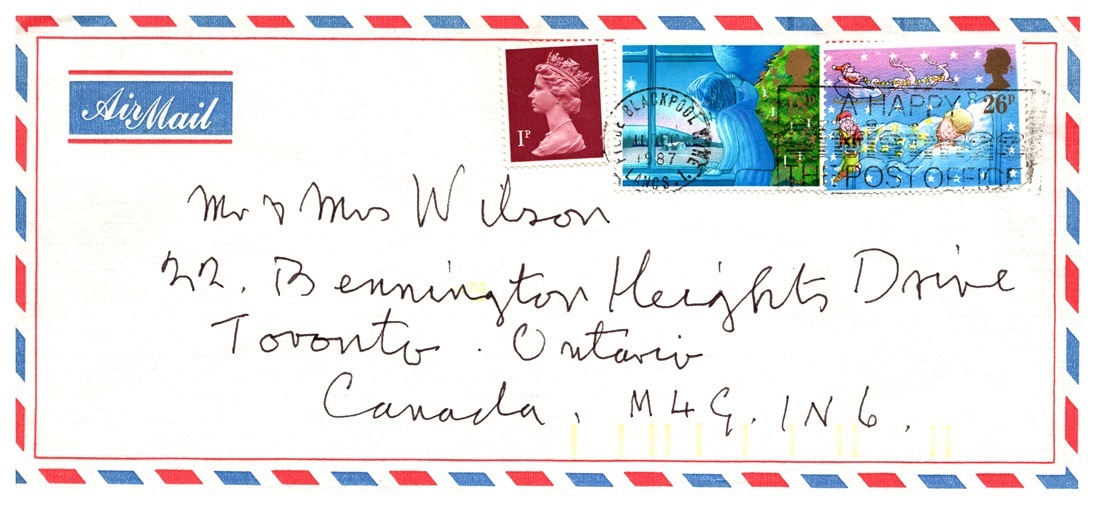 Air Mail
1P
26P
BLACKPOOL
1987
LANCS.
A HAPPY
THE POST OFFICE
Mr & Mrs Wilson
22. Bennington Heights Drive
Toronto. Ontario
Canada, M4G. 1N6.